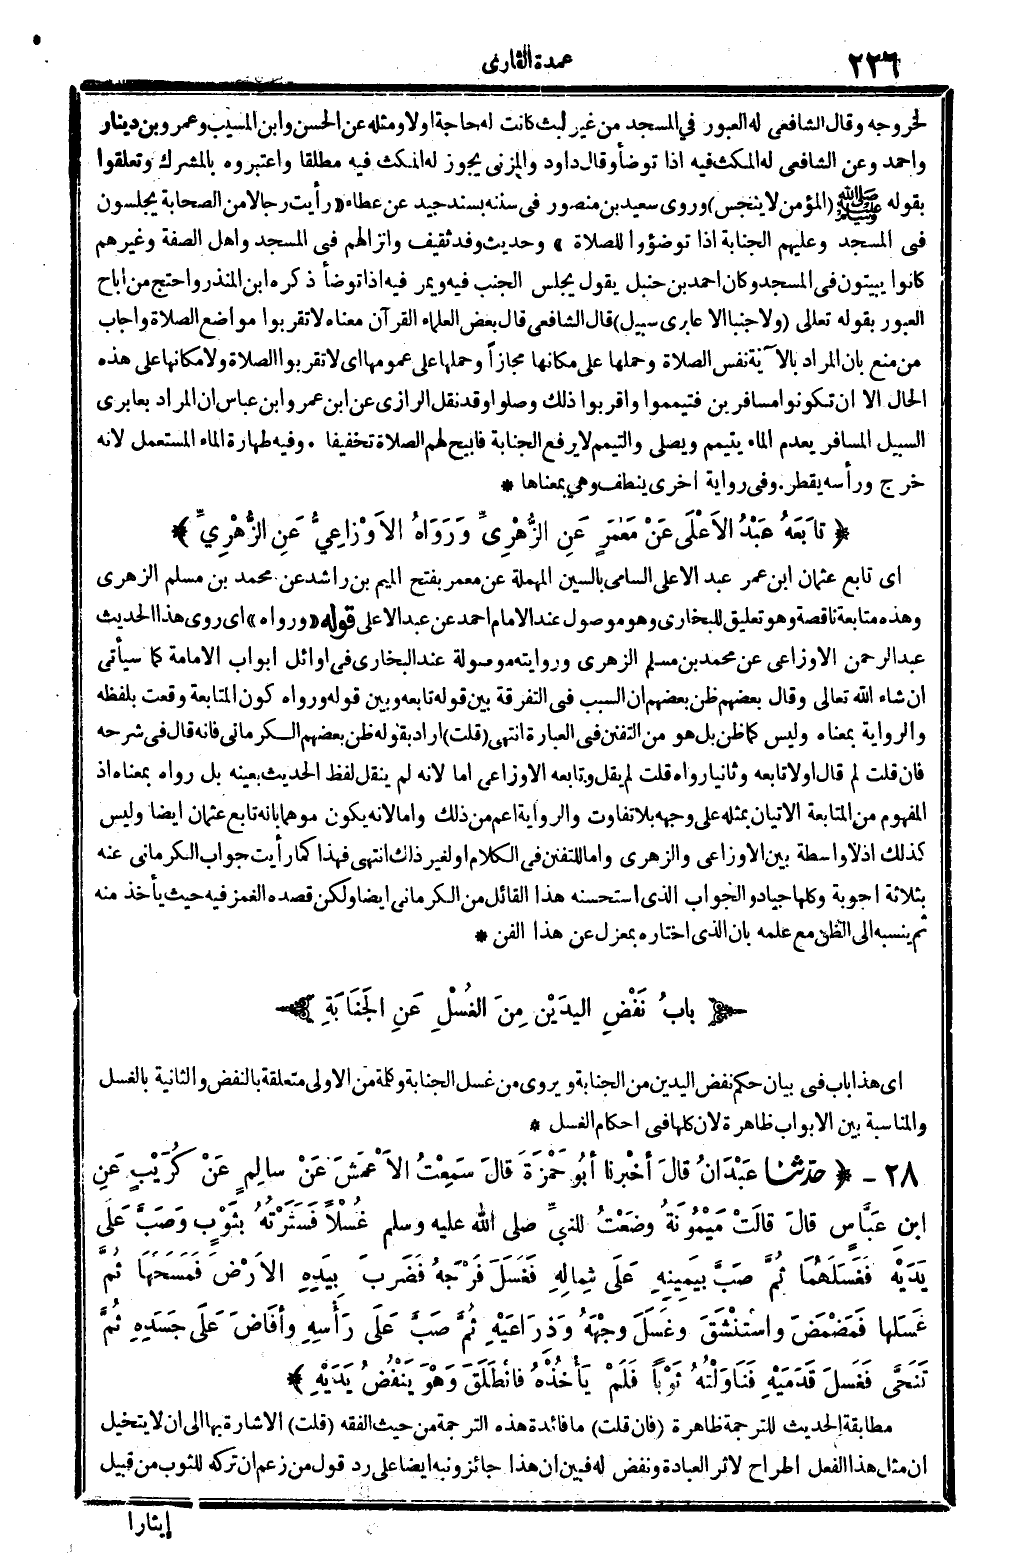 ٢٢٦
عمدة القارى
لخروجه وقال الشافعى له العبور في المسجد من غير لبث كانت له حاجة اولا ومثله عن الحسن وابن المسيب وعمرو بن دينار
واحمد وعن الشافعى له المكث فيه اذا توضأ وقال داود والمزنى يجوز له المكث فيه مطلقا واعتبروه بالمشرك وتعلقوا
بقوله ﷺ (المؤمن لا ينجس) وروى سعيد بن منصور فى سننه بسند جيد عن عطاء «رأيت رجالا من الصحابة يجلسون
فى المسجد وعليهم الجنابة اذا توضؤوا للصلاة» وحديث وفد ثقيف وانزالهم فى المسجد واهل الصفة وغيرهم
كانوا يبيتون فى المسجد وكان احمد بن حنبل يقول يجلس الجنب فيه ويمر فيه اذا توضأ ذكره ابن المنذر واحتج من اباح
العبور بقوله تعالى (ولا جنبا الا عابرى سبيل) قال الشافعى قال بعض العلماء القرآن معناه لا تقربوا مواضع الصلاة واجاب
من منع بان المراد بالآية نفس الصلاة وحملها على مكانها مجازاً وحملها على عمومها اى لا تقربوا الصلاة ولا مكانها على هذه
الحال الا ان تكونوا مسافرين فتيمموا واقربوا ذلك وصلوا وقد نقل الرازى عن ابن عمر وابن عباس ان المراد بعابرى
السبيل المسافر يعدم الماء يتيمم ويصلى والتيمم لا يرفع الجنابة فابيح لهم الصلاة تخفيفا . وفيه طهارة الماء المستعمل لانه
خرج ورأسه يقطر. وفى رواية اخرى ينطف وهي بمعناها *
﴿ تابَعَهُ عَبْدُ الأَعْلَى عَنْ مَعْمَرٍ عَنِ الزُّهْرِىِّ وَرَوَاهُ الأَوْزَاعِيُّ عَنِ الزُّهْرِيِّ ﴾
اى تابع عثمان ابن عمر عبد الاعلى السامى بالسين المهملة عن معمر بفتح الميم بن راشد عن محمد بن مسلم الزهرى
وهذه متابعة ناقصة وهو تعليق للبخارى وهو موصول عند الامام احمد عن عبد الاعلى قوله «ورواه» اى روى هذا الحديث
عبد الرحمن الاوزاعى عن محمد بن مسلم الزهرى وروايته موصولة عند البخارى فى اوائل ابواب الامامة كما سيأتى
ان شاء الله تعالى وقال بعضهم ظن بعضهم ان السبب فى التفرقة بين قوله تابعه وبين قوله ورواه كون المتابعة وقعت بلفظه
والرواية بمعناه وليس كما ظن بل هو من التفنن فى العبارة انتهى (قلت) اراد بقوله ظن بعضهم الكرمانى فانه قال فى شرحه
فان قلت لم قال اولا تابعه وثانيا رواه قلت لم يقل وتابعه الاوزاعى اما لانه لم ينقل لفظ الحديث بعينه بل رواه بمعناه اذ
المفهوم من المتابعة الاتيان بمثله على وجهه بلا تفاوت والرواية اعم من ذلك واما لانه يكون موهما بانه تابع عثمان ايضا وليس
كذلك اذ لا واسطة بين الاوزاعى والزهرى واما للتفنن فى الكلام او لغير ذلك انتهى فهذا كما رأيت جواب الكرمانى عنه
بثلاثة اجوبة وكلها جياد والجواب الذى استحسنه هذا القائل من الكرمانى ايضا ولكن قصده الغمز فيه حيث يأخذ منه
ثم ينسبه الى الظن مع علمه بان الذى اختاره بمعزل عن هذا الفن *
﴿ بابُ نَفْضِ اليدَيْنِ مِنَ الغُسْلِ عَنِ الجَنَابَةِ ﴾
اى هذا باب فى بيان حكم نفض اليدين من الجنابة ويروى من غسل الجنابة وكلمة من الاولى متعلقة بالنفض والثانية بالغسل
والمناسبة بين الابواب ظاهرة لان كلها فى احكام الغسل *
٢٨ - ﴿ حدثنا عَبْدَانُ قالَ أخْبرنا أبُو حَمْزَةَ قالَ سَمِعْتُ الأَعْمَشَ عَنْ سالِمٍ عَنْ كُرَيْبٍ عَنِ
ابنِ عَبَّاسٍ قالَ قالَتْ مَيْمُونَةُ وضَعْتُ للنبيِّ صلى الله عليه وسلم غُسْلاً فَسَتَرْتُهُ بِثَوْبٍ وَصَبَّ عَلَى
يَدَيْهِ فَغَسَلَهُمَا ثُمَّ صَبَّ بيَمِينِهِ عَلَى شِمالِهِ فَغَسَلَ فَرْجَهُ فَضَرَبَ بِيَدِهِ الأَرْضَ فَمَسَحَهَا ثُمَّ
غَسَلها فَمَضْمَضَ واسْتَنْشَقَ وغَسَلَ وجْهَهُ وَذِرَاعَيْهِ ثُمَّ صَبَّ عَلَى رَأْسِهِ وأفَاضَ عَلَى جَسَدِهِ ثُمَّ
تَنَحَّى فَغَسلَ قَدَمَيْهِ فَنَاوَلْتُهُ ثَوْباً فَلَمْ يَأْخُذْهُ فانْطَلَقَ وَهْوَ يَنْفُضُ يَدَيْهِ ﴾
مطابقة الحديث للترجمة ظاهرة (فان قلت) ما فائدة هذه الترجمة من حيث الفقه (قلت) الاشارة بها الى ان لا يتخيل
ان مثل هذا الفعل اطراح لاثر العبادة ونفض له فبين ان هذا جائز ونبه ايضا على رد قول من زعم ان تركه للثوب من قبيل
إيثارا